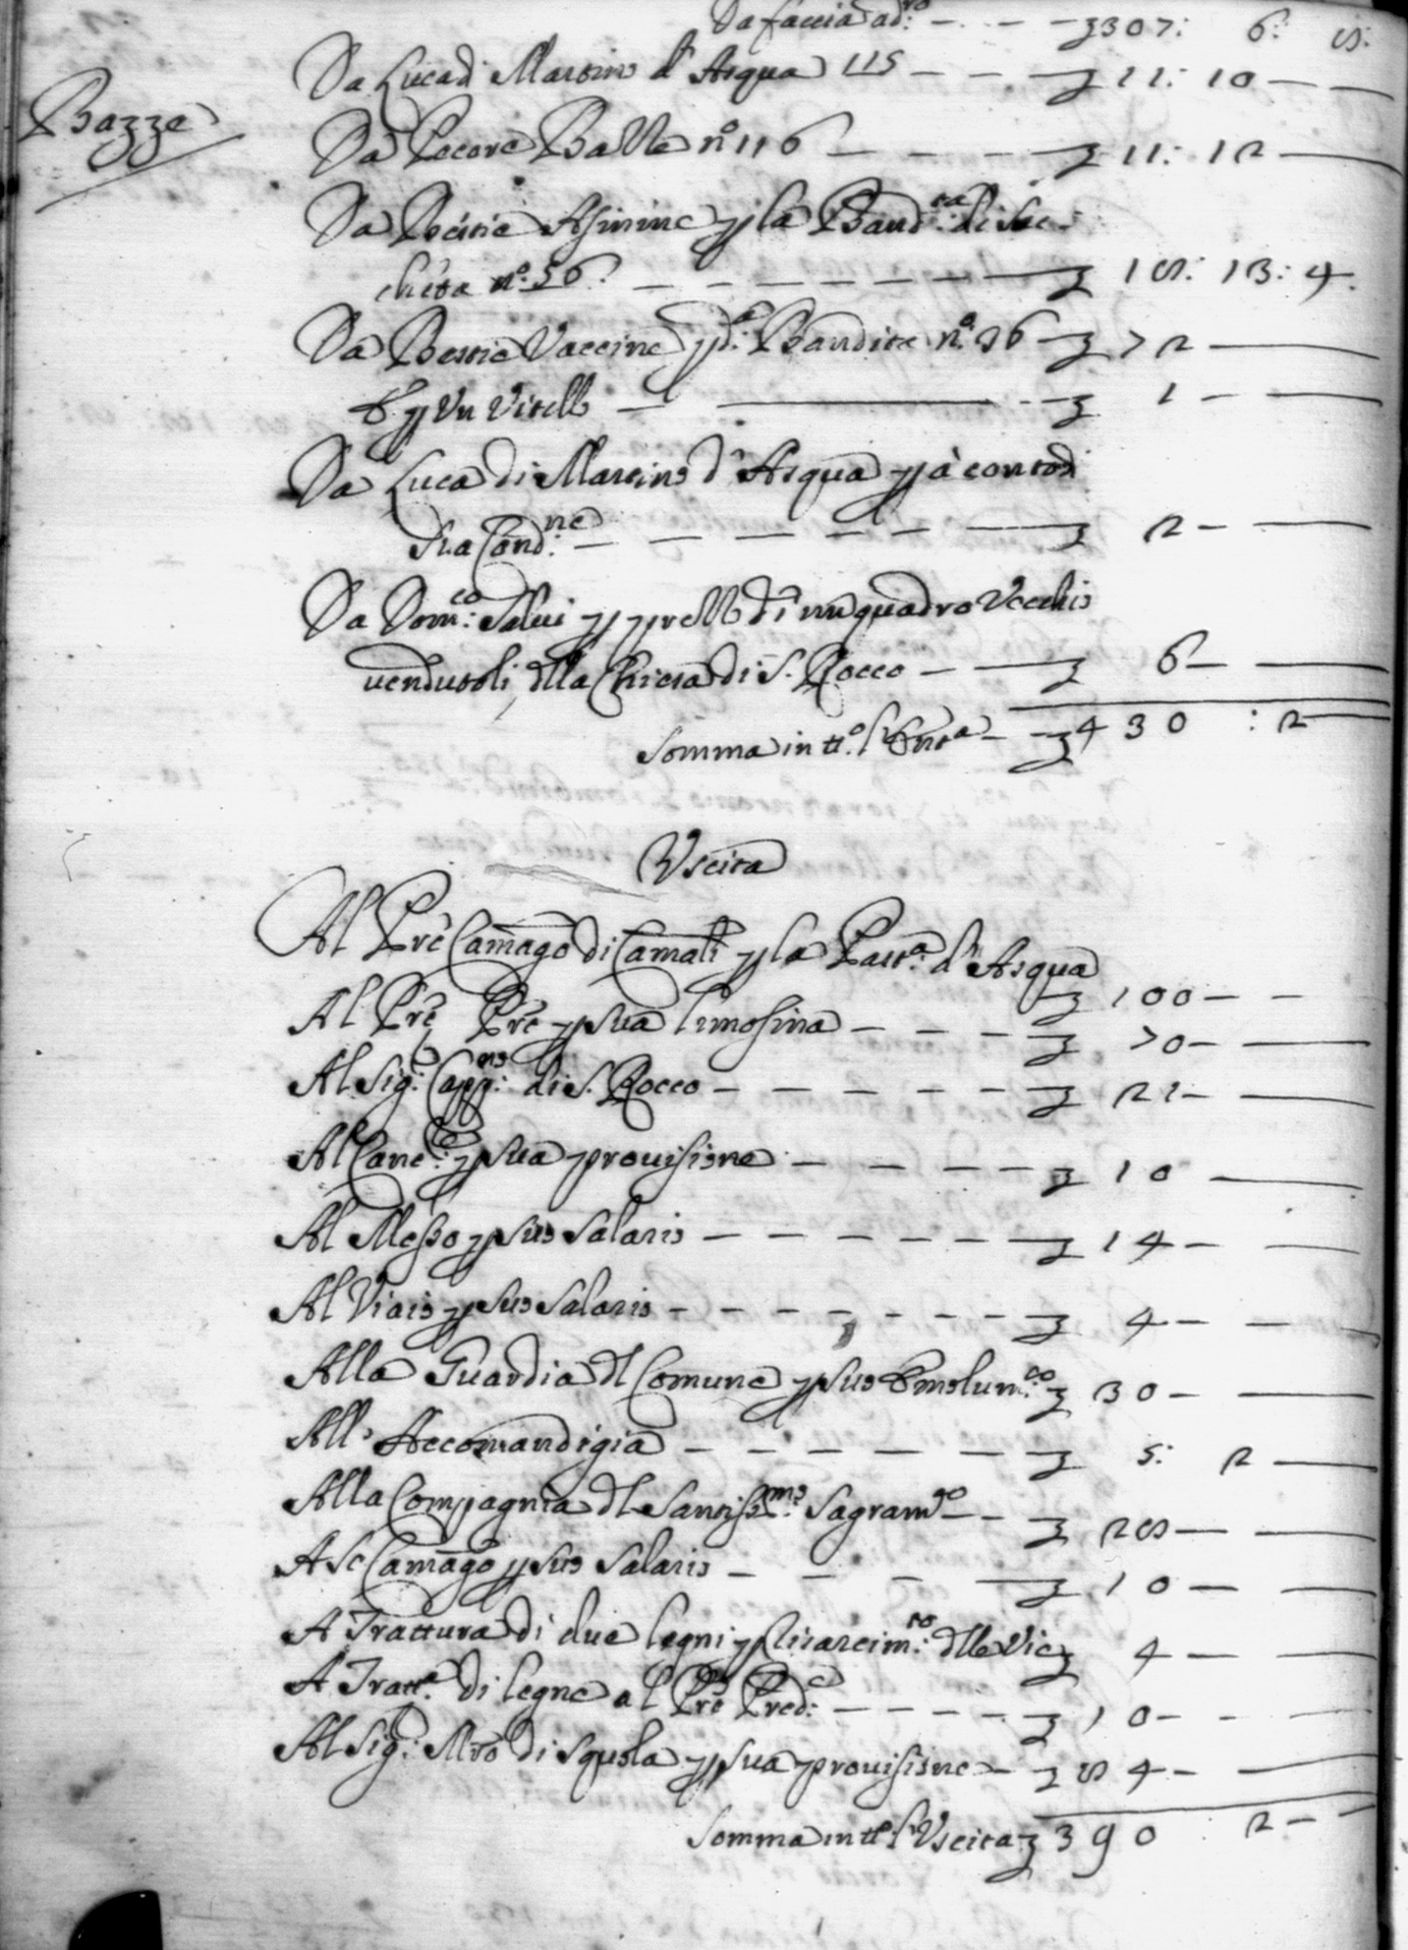 Da faccia ad.ro — — — ʒ 307: 6: 8:
Da Luca di Martino d'Asqua 115 — — — ʒ 11: 10 —
Bazze
Da Pecore Balle n.o 116 — — — ʒ 11: 12 —
Da Bestie Asinine p la Band.ta di Sec:
cheta n.o: 56. — — — ʒ 18: 13: 4.
Da Bestie Vaccine p d.a Bandita n.o 36 — ʒ 72 —
E p Un Vitello — — — ʒ 1 —
Da Luca di Martino d'Asqua p à conto di
sua Cond.ne — — — ʒ 2 —
Da Dom.co Salvi p prezzo di un quadro Vecchio
vendutoli, dlla Chiesa di S. Rocco — — ʒ 6 —
Somma in tt.o l'Ent.a — — ʒ 430 : 2
Uscita
Al Prē Camāgo di Camali p la Past.a d'Asqua
ʒ 100 — —
Al Prē, Prē p sua limosina — — — ʒ 70 —
Al Sig: Capp.no: di S. Rocco — — — ʒ 21 —
Al Canc.re: p sua provisione — — — ʒ 10 —
Al Messo p suo salario — — — ʒ 14 —
Al Viaio p suo salario — — — ʒ 4 —
Alla Guardia dl Comune p suo Emolum.to ʒ 30 —
All'Accomandigia — — — ʒ 5: 2 —
Alla Compagnia dl Santiss.mo Sagram.to — — ʒ 28 —
A se Camāgo p suo salario — — — ʒ 10 —
A Trattura di due legni p risarcim.to: dlle Vie ʒ 4 —
A Tratt.a di legne al Prē Pred.e — — — ʒ 10 —
Al Sig: Mrō di squola p sua provisione — ʒ 84 —
Somma in tt.o l'Uscita ʒ 390 : 2 —